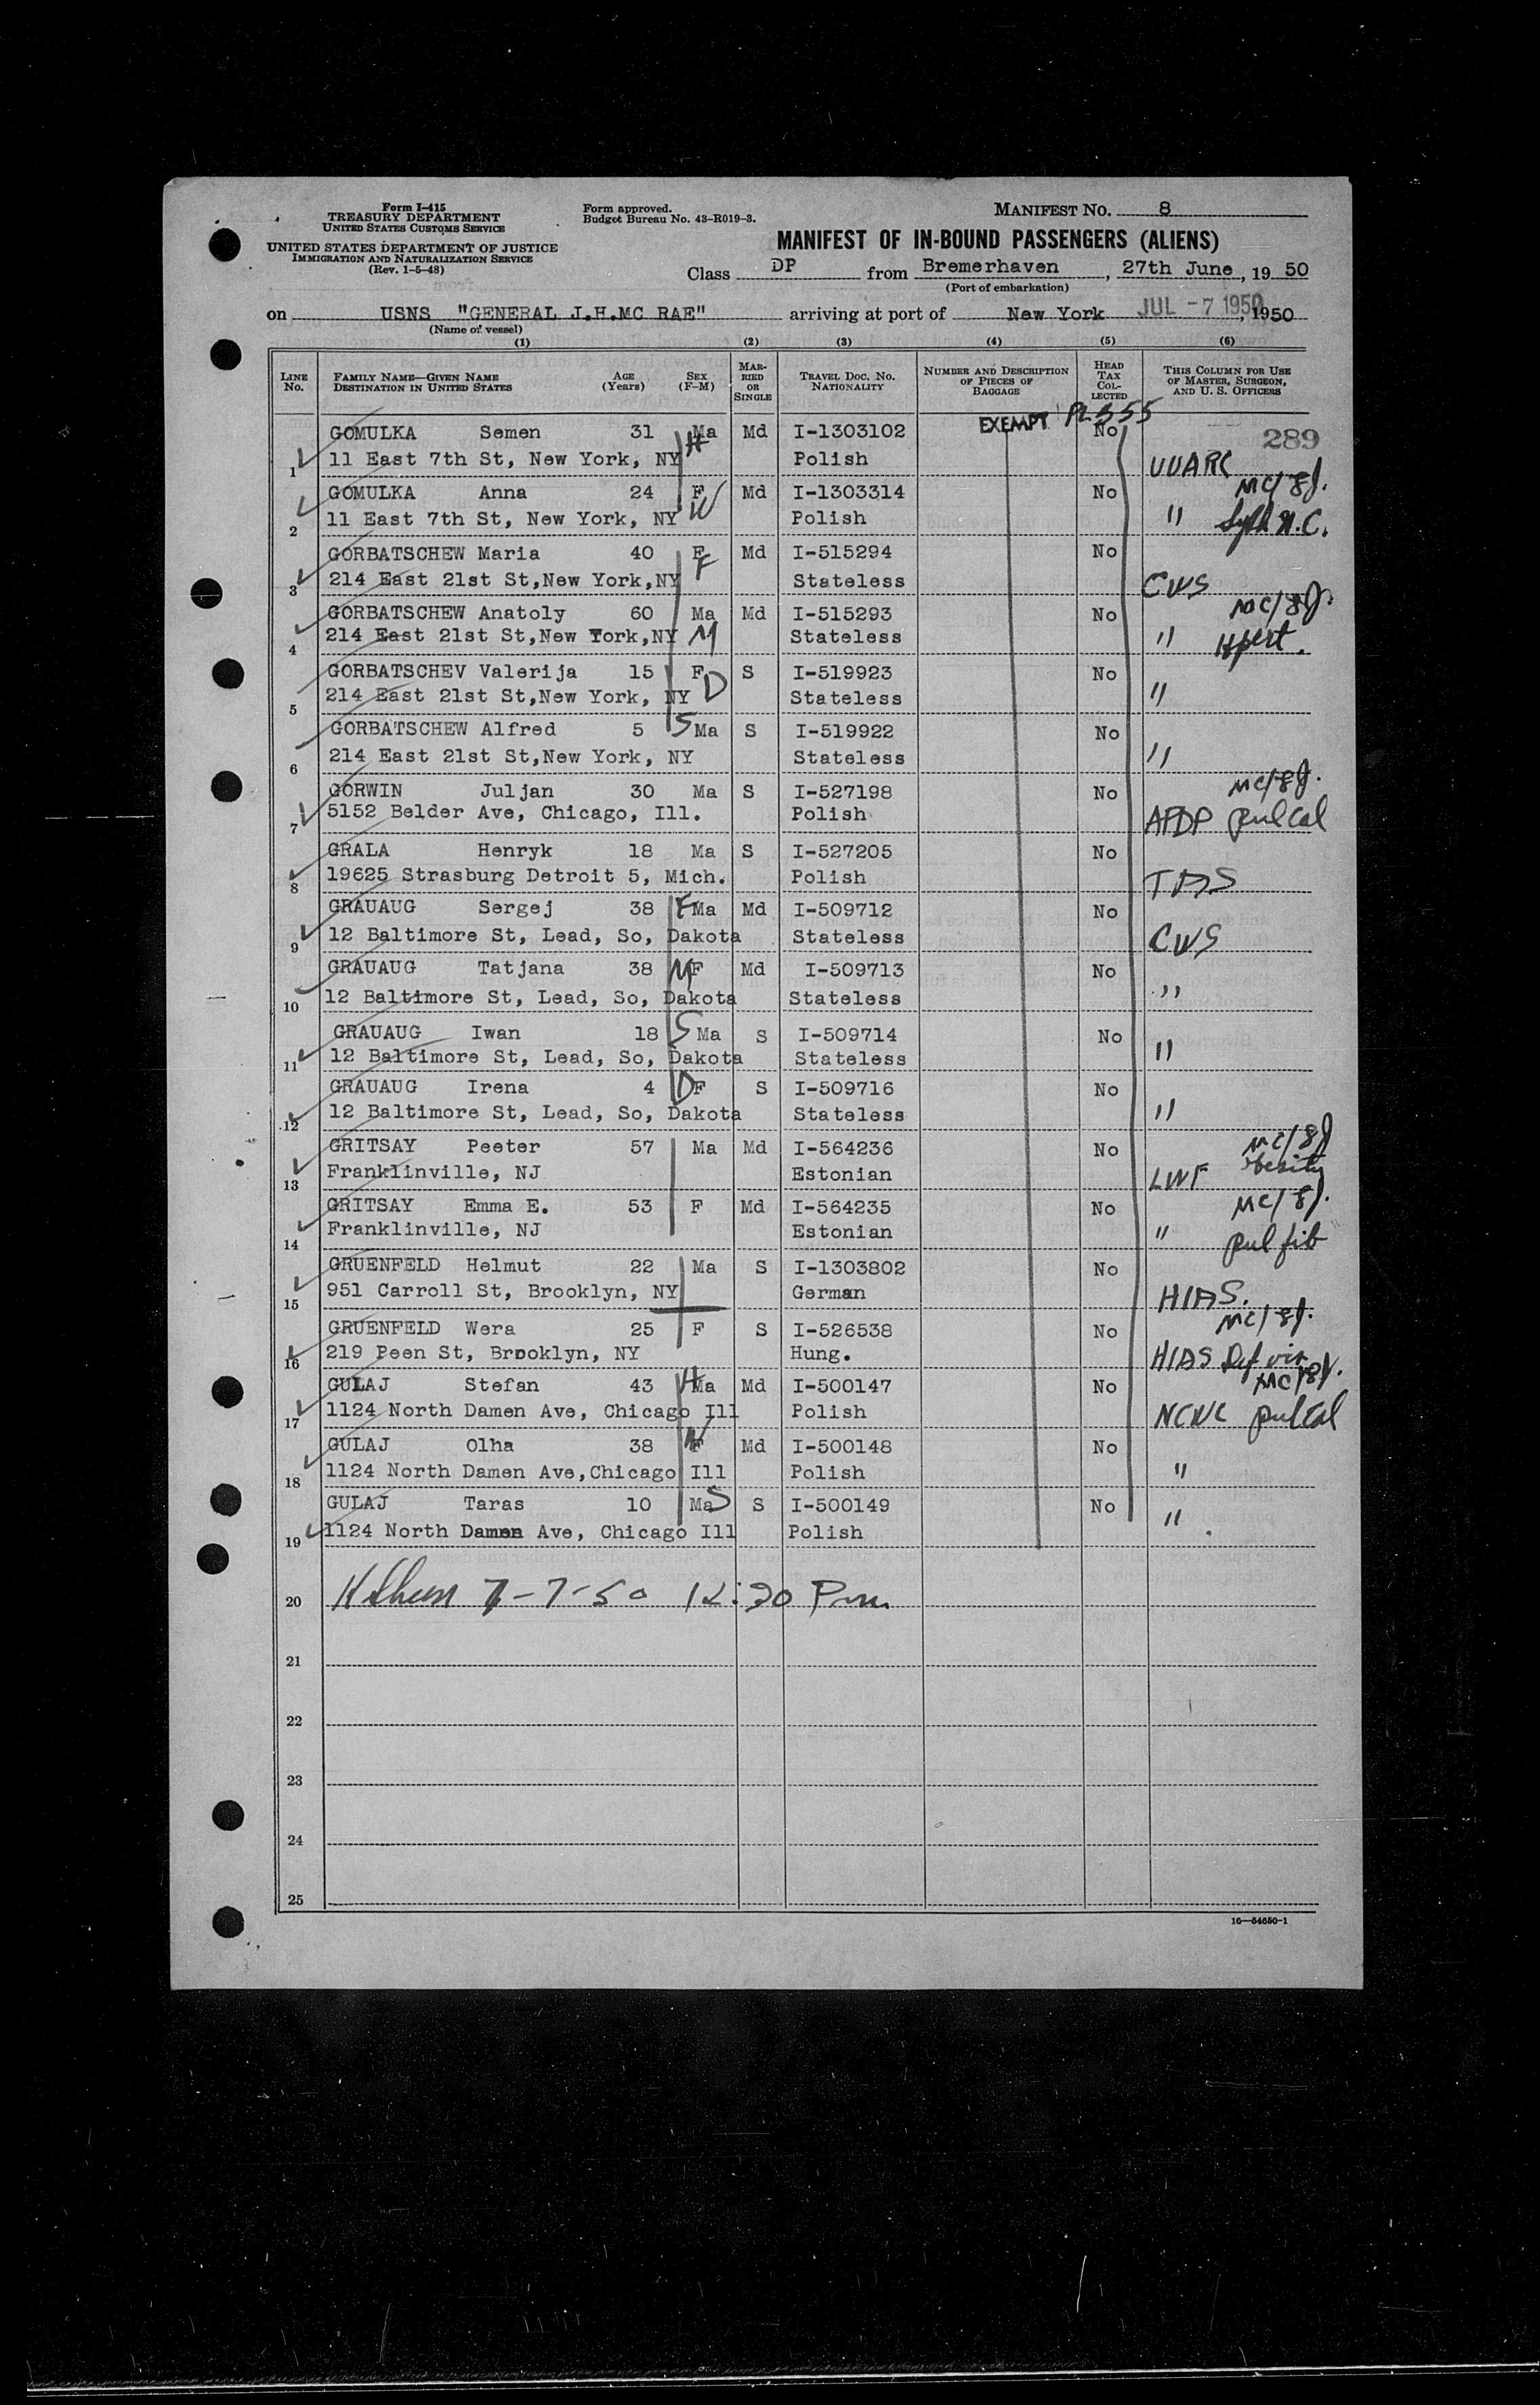 Form I-415
TREASURY DEPARTMENT
UNITED STATES CUSTOMS SERVICE
UNITED STATES DEPARTMENT OF JUSTICE
IMMIGRATION AND NATURALIZATION SERVICE
(Rev. 1-5-48)
Form approved.
Budget Bureau No. 43-R019-3.
MANIFEST NO. 8
MANIFEST OF IN-BOUND PASSENGERS (ALIENS)
Class DP from Bremerhaven, 27th June, 19 50
(Port of embarkation)
on USNS "GENERAL J.H.MC RAE" arriving at port of New York JUL -7 1950, 1950
(Name of vessel)
(1) (2) (3) (4) (5) (6)
LINE No. FAMILY NAME—GIVEN NAME DESTINATION IN UNITED STATES AGE (Years) SEX (F-M) MARRIED OR SINGLE TRAVEL DOC. NO. NATIONALITY NUMBER AND DESCRIPTION OF PIECES OF BAGGAGE HEAD TAX COLLECTED THIS COLUMN FOR USE OF MASTER, SURGEON, AND U. S. OFFICERS
EXEMPT PL 555
GOMULKA Semen 31 Ma H Md I-1303102 No 289
1 11 East 7th St, New York, NY Polish UUARC
GOMULKA Anna 24 F W Md I-1303314 No MC/8J.
2 11 East 7th St, New York, NY Polish " Syph N.C.
GORBATSCHEW Maria 40 F F Md I-515294 No
3 214 East 21st St,New York,NY Stateless CWS
GORBATSCHEW Anatoly 60 Ma Md I-515293 No MC/8J.
4 214 East 21st St,New York,NY M Stateless " Hpert.
GORBATSCHEV Valerija 15 F D S I-519923 No
5 214 East 21st St,New York, NY Stateless "
GORBATSCHEW Alfred 5 S Ma S I-519922 No
6 214 East 21st St,New York, NY Stateless "
GORWIN Juljan 30 Ma S I-527198 No MC/8J.
7 5152 Belder Ave, Chicago, Ill. Polish AFDP pul Cal
GRALA Henryk 18 Ma S I-527205 No
8 19625 Strasburg Detroit 5, Mich. Polish
GRAUAUG Sergej 38 F Ma Md I-509712 No
9 12 Baltimore St, Lead, So, Dakota Stateless CWS
GRAUAUG Tatjana 38 M F Md I-509713 No
10 12 Baltimore St, Lead, So, Dakota Stateless "
GRAUAUG Iwan 18 S Ma S I-509714 No
11 12 Baltimore St, Lead, So, Dakota Stateless "
GRAUAUG Irena 4 D F S I-509716 No
12 12 Baltimore St, Lead, So, Dakota Stateless "
GRITSAY Peeter 57 Ma Md I-564236 No MC/8J
13 Franklinville, NJ Estonian LWF obesity
GRITSAY Emma E. 53 F Md I-564235 No MC/8J.
14 Franklinville, NJ Estonian " pul fib
GRUENFELD Helmut 22 Ma S I-1303802 No
15 951 Carroll St, Brooklyn, NY German HIAS.
GRUENFELD Wera 25 F S I-526538 No MC/8J.
16 219 Peen St, Brooklyn, NY Hung. HIAS Def vis
GULAJ Stefan 43 H Ma Md I-500147 No MC/8J.
17 1124 North Damen Ave, Chicago Ill Polish NCWC pul Cal
GULAJ Olha 38 W F Md I-500148 No
18 1124 North Damen Ave,Chicago Ill Polish "
GULAJ Taras 10 Ma S S I-500149 No
19 1124 North Damen Ave, Chicago Ill Polish "
20 7-7-50 12:30 Pm
21
22
23
24
25
16—54650-1